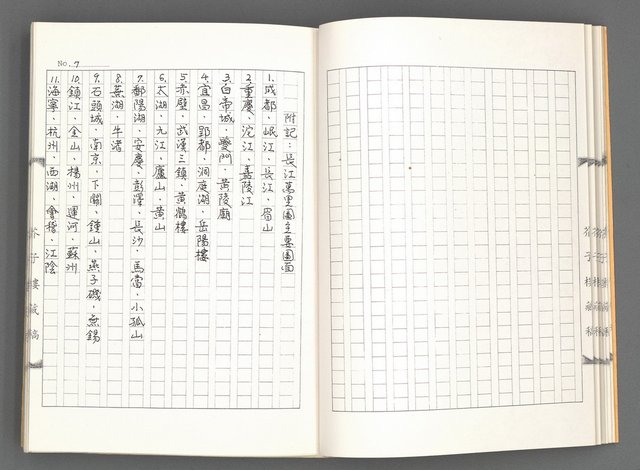 No. 7
附記：長江萬里圖主要圖面
1.成都、岷江、長江、眉山
2.重慶、沱江、嘉陵江
3.白帝城、夔門、黃陵廟
4.宜昌、郢都、洞庭湖、岳陽樓
5.赤壁、武漢三鎮、黃鶴樓
6.太湖、九江、廬山、黃山
7.鄱陽湖、安慶、彭澤、長沙、馬當、小孤山
8.蕪湖、牛渚
9.石頭城、南京、下關、鍾山、燕子磯、無錫
10.鎮江、金山、楊州、運河、蘇州
11.海寧、杭州、西湖、會稽、江陰
芥子樓藏稿